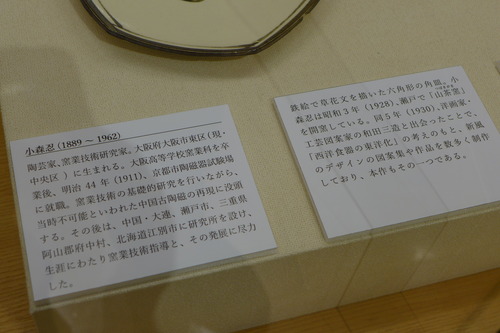 小森忍(1889 ～ 1962)
陶芸家、窯業技術研究家。大阪府大阪市東区(現・
中央区)に生まれる。大阪高等学校窯業科を卒
業後、明治 44 年(1911)、京都市陶磁器試験場
に就職。窯業技術の基礎的研究を行いながら、
当時不可能といわれた中国古陶磁の再現に没頭
する。その後は、中国・大連、瀬戸市、三重県
阿山郡府中村、北海道江別市に研究所を設け、
生涯にわたり窯業技術指導と、その発展に尽力
した。
鉄絵で草花文を描いた六角形の角皿。小
森忍は昭和 3 年(1928)、瀬戸で「山茶窯」
を開窯している。同 5 年(1930)、洋画家・
工芸図案家の和田三造と出会ったことで、
「西洋食器の東洋化」の考えのもと、新風
のデザインの図案集や作品を数多く制作
しており、本作もその一つである。